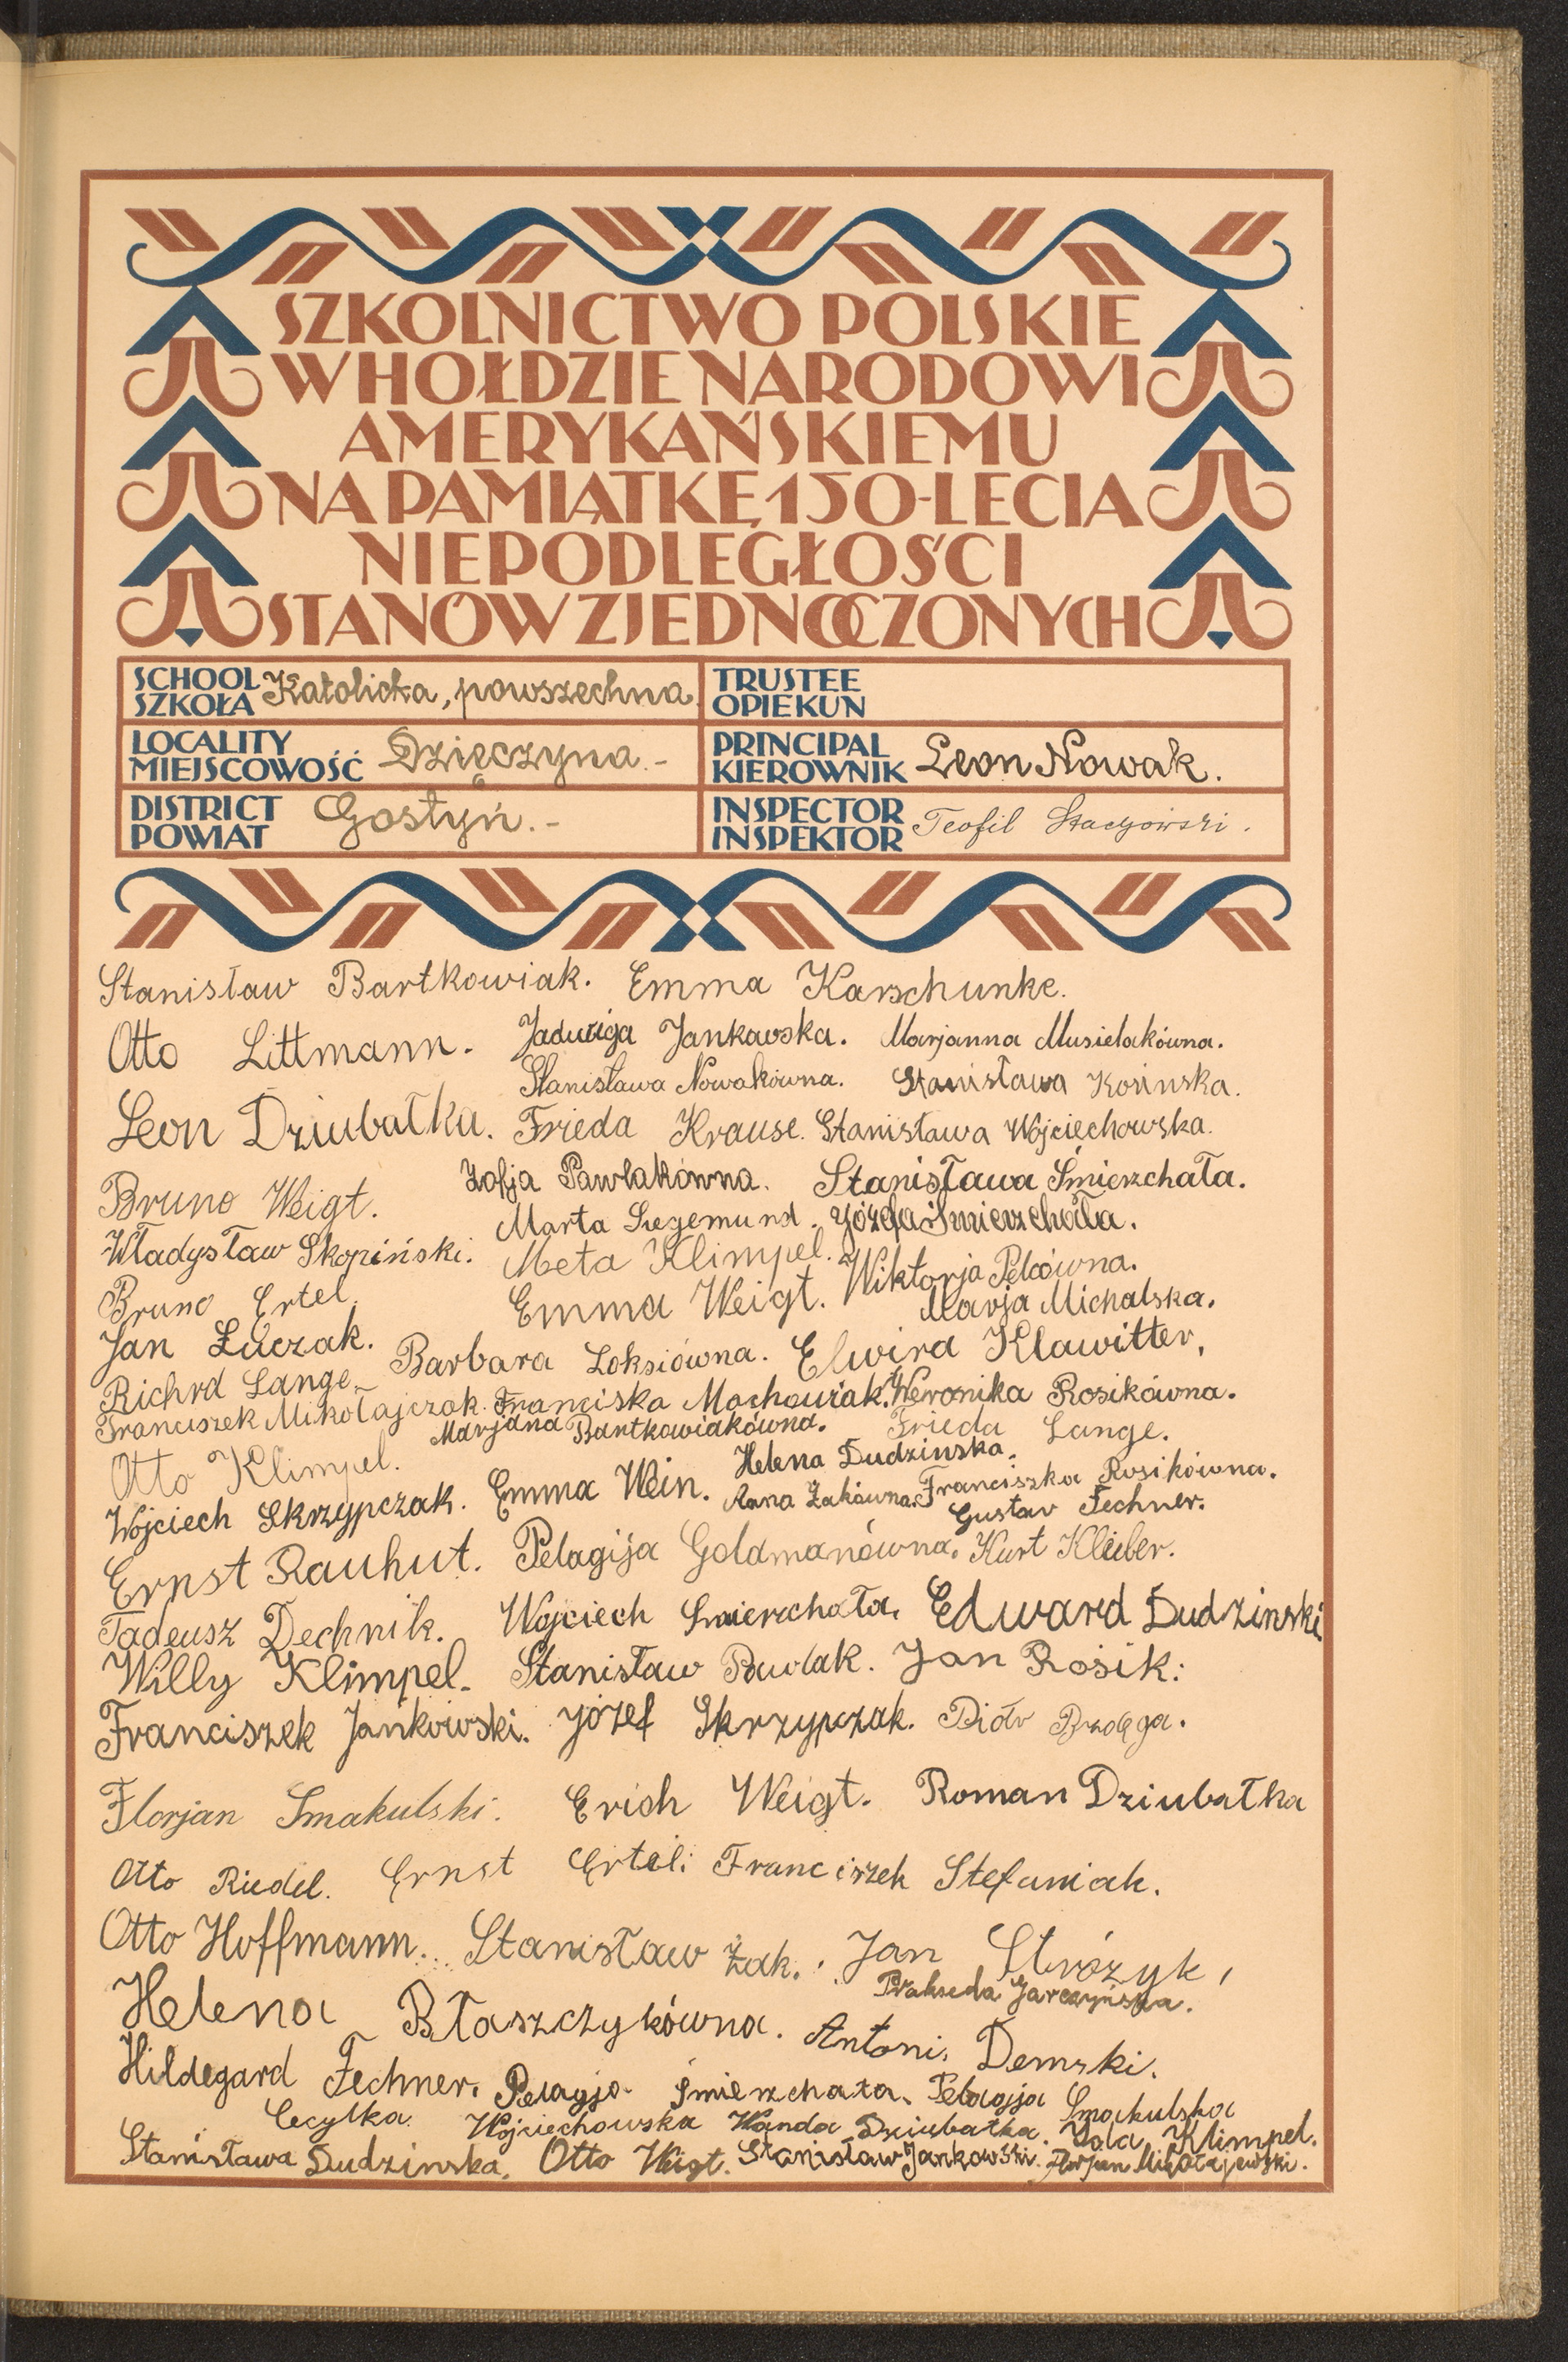 SZKOLNICTWO POLSKIE
W HOŁDZIE NARODOWI
AMERYKAŃSKIEMU
NA PAMIĄTKĘ 150-LECIA
NIEPODLEGŁOŚCI
STANÓW ZJEDNOCZONYCH
SCHOOL
SZKOŁA Katolicka, powszechna
TRUSTEE
OPIEKUN
LOCALITY
MIEJSCOWOŚĆ Dzięczyna.-
PRINCIPAL
KIEROWNIK Leon Nowak.
DISTRICT
POWIAT Gostyń.-
INSPECTOR
INSPEKTOR Teofil
Stanisław Bartkowiak. Emma Karschunke.
Otto Littmann. Jadwiga Jankowska. Marjanna Musielakówna.
Stanisława Nowakówna. Stanisława Kosinska.
Leon Dziubałka. Frieda Krause. Stanisława Wojciechowska.
Bruno Weigt. Zofja Pawlakówna. Stanisława Śmierzchała.
Marta Siegemund. Józefa Śmierzchała.
Władysław Skopiński. Meta Klimpel. Wiktorja
Bruno Ertel. Emma Weigt. Marja Michalska.
Jan Łuczak. Barbara Loksiówna. Elwira Klawitter,
Richrd Lange. Franciska Machowiak. Weronika Rosikówna.
Franciszek Mikołajczak. Marjana Bartkowiakówna. Frieda Lange.
Otto Klimpel. Helena Dudzinska.
Wojciech Skrzypczak. Emma Wein. Anna Żakówna. Franciszka Rosikówna.
Gustav Fechner.
Ernst Rauhut. Pelagija Goldmanówna. Kurt Kleiber.
Tadeusz Dechnik. Wojciech Śmierzchała. Edward Dudzinski
Willy Klimpel. Stanisław Pawlak. Jan Rosik.
Franciszek Jankowski. Józef Skrzypczak. Piotr
Florjan Smakulski. Erich Weigt. Roman Dziubałka
Otto Riedel. Ernst Ertel. Franciszek Stefaniak.
Otto Hoffmann. Stanisław Żak. Jan Stróżyk,
Prakseda Jarczyńska.
Helena Błaszczykówna. Antoni Demski.
Hildegard Fechner. Pelagja Śmierzchała. Pelagja Smakulska
Cecylka Wojciechowska Wanda Dziubałka. Klimpel.
Stanisława Dudzinska. Otto Weigt. Stanisław Jankowski. Florjan Mikołajewski.